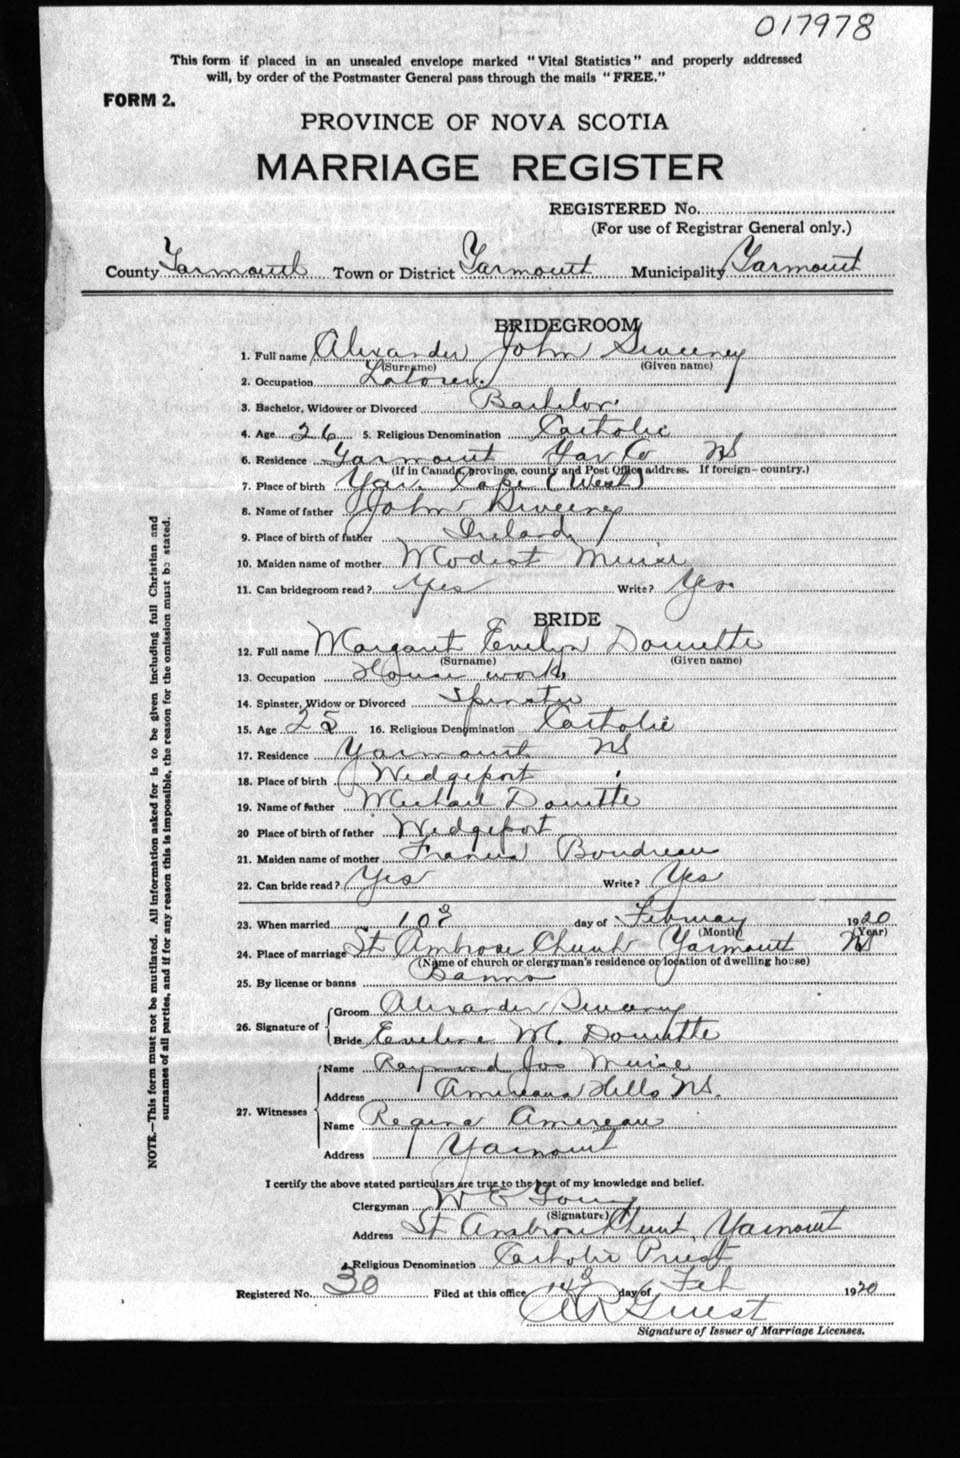 017978
This form if placed in an unsealed envelope marked "Vital Statistics" and properly addressed
will, by order of the Postmaster General pass through the mails "FREE."
FORM 2.
PROVINCE OF NOVA SCOTIA
MARRIAGE REGISTER
REGISTERED No.
(For use of Registrar General only.)
County Yarmouth Town or District Yarmouth Municipality Yarmouth
BRIDEGROOM
1. Full name Alexander John Sweeney
(Surname) (Given name)
2. Occupation Laborer
3. Bachelor, Widower or Divorced Bachelor
4. Age 26 5. Religious Denomination Catholic
6. Residence Yarmouth Yar Co NS
(If in Canada, province, county and Post Office address. If foreign—country.)
7. Place of birth Yar. Cape (West)
8. Name of father John Sweeney
9. Place of birth of father Ireland
10. Maiden name of mother Modest Muise
11. Can bridegroom read? Yes Write? Yes
BRIDE
12. Full name Margaret Evelyn Doucette
(Surname) (Given name)
13. Occupation House work
14. Spinster, Widow or Divorced Spinster
15. Age 25 16. Religious Denomination Catholic
17. Residence Yarmouth NS
18. Place of birth Wedgeport
19. Name of father Michael Doucette
20 Place of birth of father Wedgeport
21. Maiden name of mother Boudreau
22. Can bride read? Yes Write? Yes
23. When married 10 day of February 1920
(Month) (Year)
24. Place of marriage St Ambrose Church Yarmouth NS
(Name of church or clergyman's residence or location of dwelling house)
25. By license or banns Banns
26. Signature of Groom Alexander Sweeney
Bride Eveline M. Doucette
27. Witnesses Name Raymond Jos Muise
Address Hills NS.
Name Regina Amereau
Address Yarmouth
I certify the above stated particulars are true to the best of my knowledge and belief.
Clergyman W E Young
(Signature)
Address St Ambrose Church, Yarmouth
Religious Denomination Catholic Priest
Registered No. 30 Filed at this office 14 day of Feb 1920
Guest
Signature of Issuer of Marriage Licenses.
NOTE.—This form must not be mutilated. All information asked for is to be given including full Christian and
surnames of all parties, and if for any reason this is impossible, the reason for the omission must be stated.